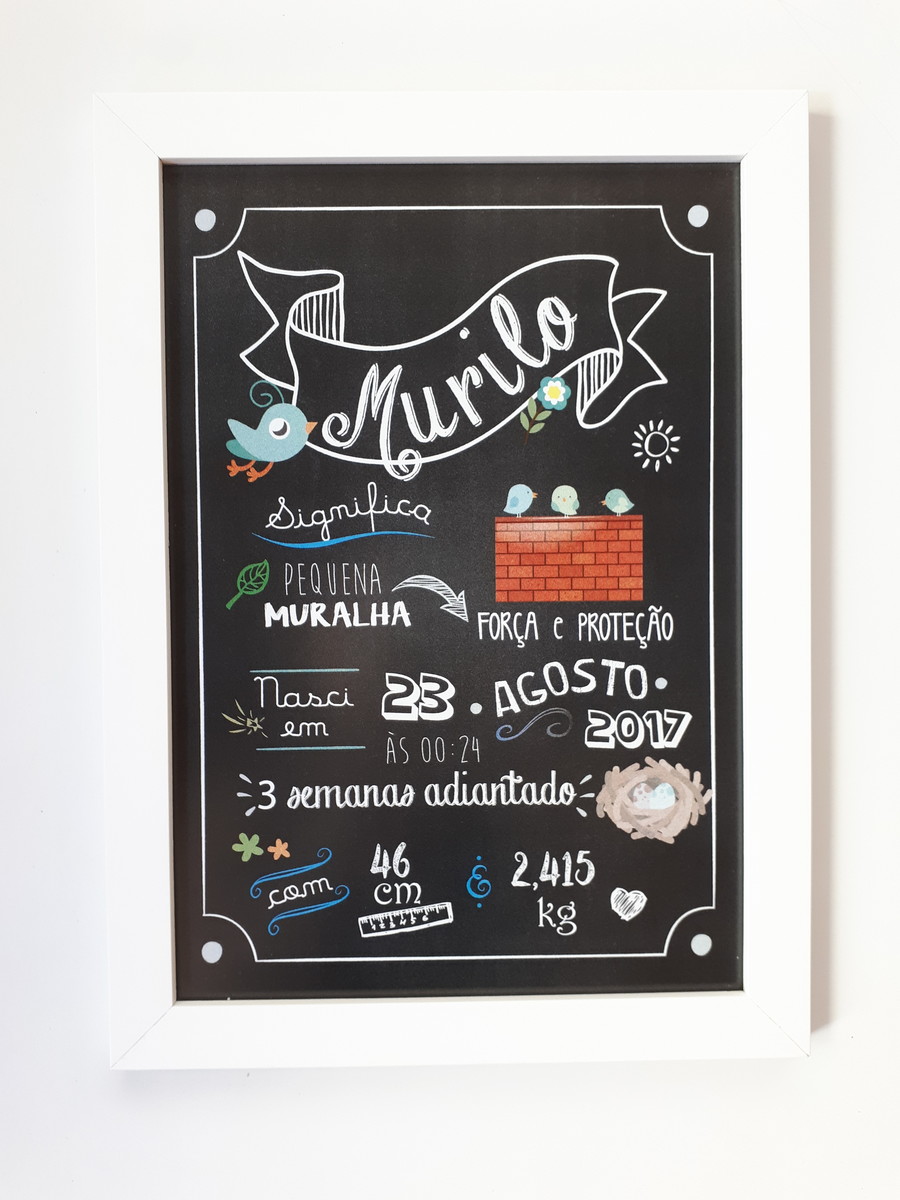 Murilo
Significa
PEQUENA
MURALHA
FORÇA e PROTEÇÃO
Nasci
em
23 • AGOSTO •
2017
ÀS 00:24
3 semanas adiantado
com
46
cm
&
2,415
kg
1 2 3 4 5 6